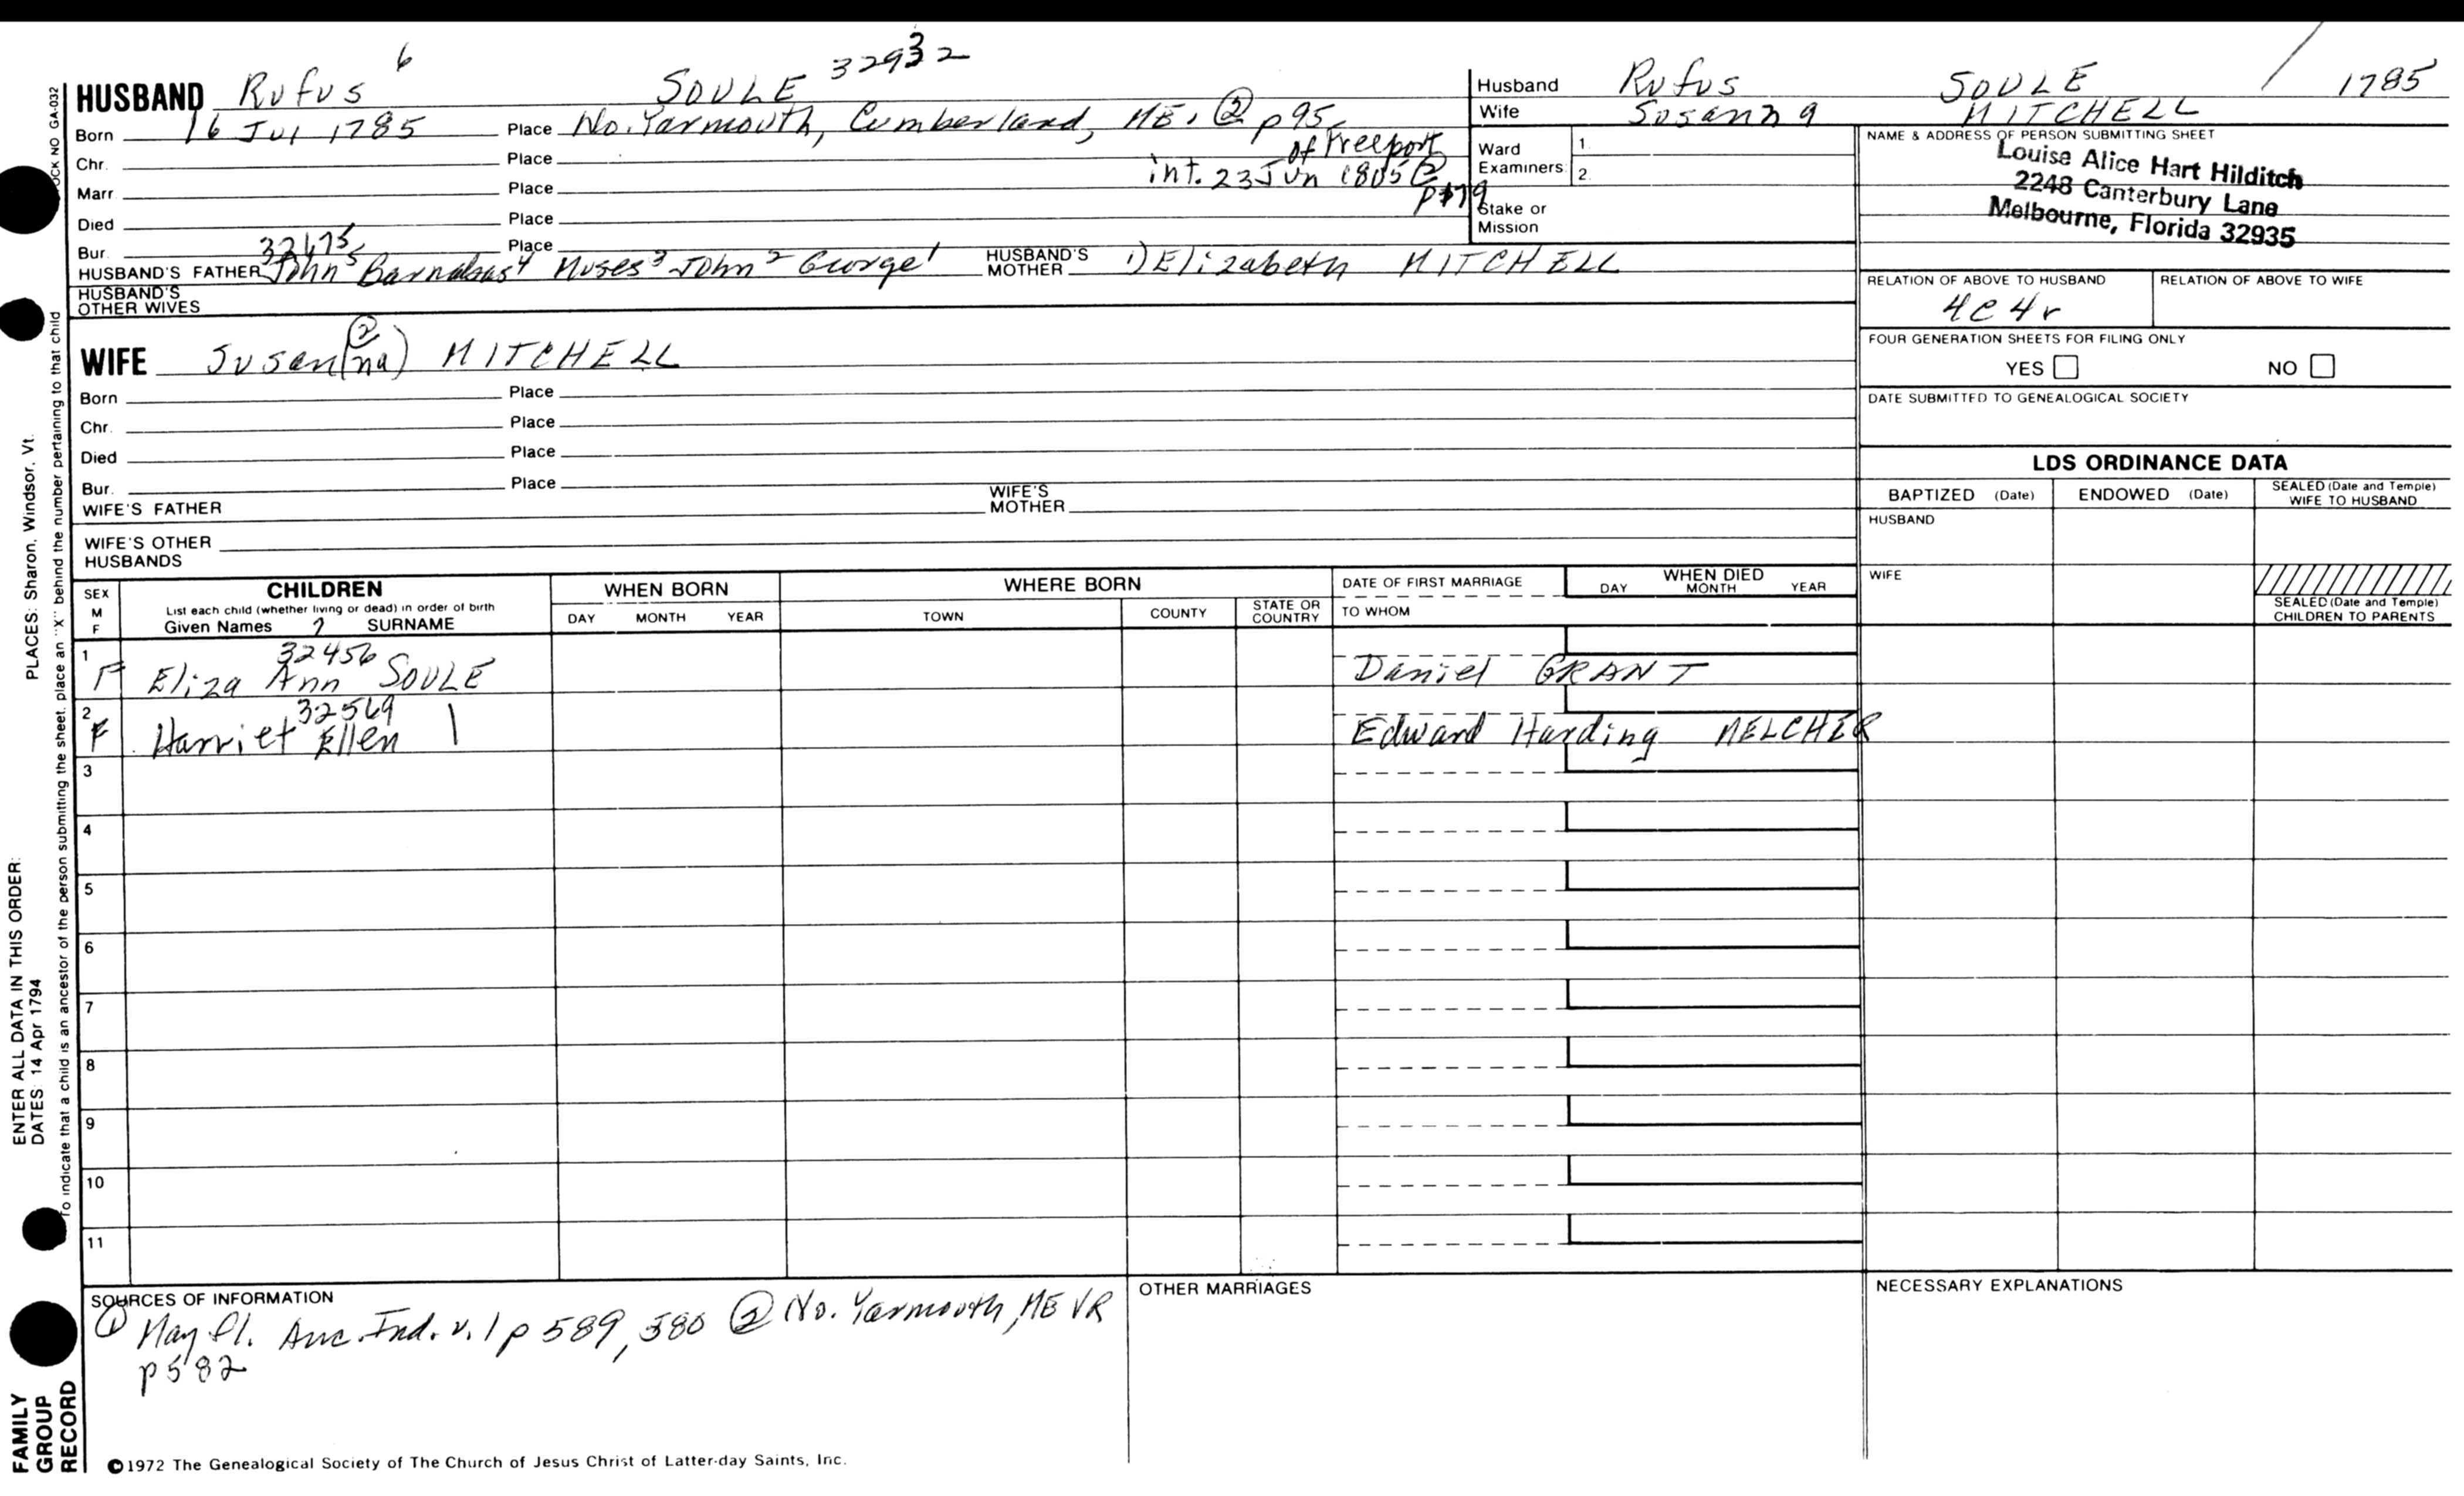 HUSBAND Rufus 6 SOULE 32932
Born 16 Jul 1785 Place No. Yarmouth, Cumberland, ME. ② p95
of Freeport
Chr. Place
int. 23 Jun 1805 ②
Marr. Place
Died Place
Bur. Place
32475
HUSBAND'S FATHER John5 Barnabas4 Moses3 John2 George1 HUSBAND'S MOTHER 1) Elizabeth MITCHELL
HUSBAND'S OTHER WIVES
②
WIFE Susan(na) MITCHELL
Born Place
Chr. Place
Died Place
Bur. Place
WIFE'S FATHER WIFE'S MOTHER
WIFE'S OTHER HUSBANDS
Husband Rufus SOULE / 1785
Wife Susanna MITCHELL
Ward Examiners: 1. 2.
Stake or Mission
NAME & ADDRESS OF PERSON SUBMITTING SHEET
Louise Alice Hart Hilditch
2248 Canterbury Lane
Melbourne, Florida 32935
RELATION OF ABOVE TO HUSBAND RELATION OF ABOVE TO WIFE
4C4r
FOUR GENERATION SHEETS FOR FILING ONLY
YES NO
DATE SUBMITTED TO GENEALOGICAL SOCIETY
LDS ORDINANCE DATA
BAPTIZED (Date) ENDOWED (Date) SEALED (Date and Temple) WIFE TO HUSBAND
HUSBAND
WIFE
SEALED (Date and Temple) CHILDREN TO PARENTS
SEX M F
CHILDREN
List each child (whether living or dead) in order of birth
Given Names 7 SURNAME
WHEN BORN
DAY MONTH YEAR
WHERE BORN
TOWN COUNTY STATE OR COUNTRY
DATE OF FIRST MARRIAGE
TO WHOM
WHEN DIED
DAY MONTH YEAR
32456
1 F Eliza Ann SOULE Daniel GRANT
32569
2 F Harriet Ellen | Edward Harding MELCHER
3
4
5
6
7
8
9
10
11
SOURCES OF INFORMATION
① May fl. Anc. Ind. v. 1 p 589, 580 ② No. Yarmouth, ME VR
p 582
OTHER MARRIAGES
NECESSARY EXPLANATIONS
©1972 The Genealogical Society of The Church of Jesus Christ of Latter-day Saints, Inc.
FAMILY GROUP RECORD
ENTER ALL DATA IN THIS ORDER:
DATES: 14 Apr 1794
PLACES: Sharon, Windsor, Vt.
To indicate that a child is an ancestor of the person submitting the sheet, place an "X" behind the number pertaining to that child
NO GA-032